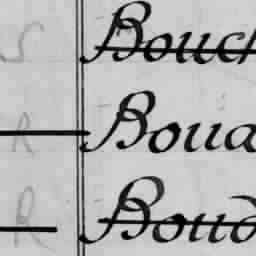 S Bouch
R Boua
R Boud